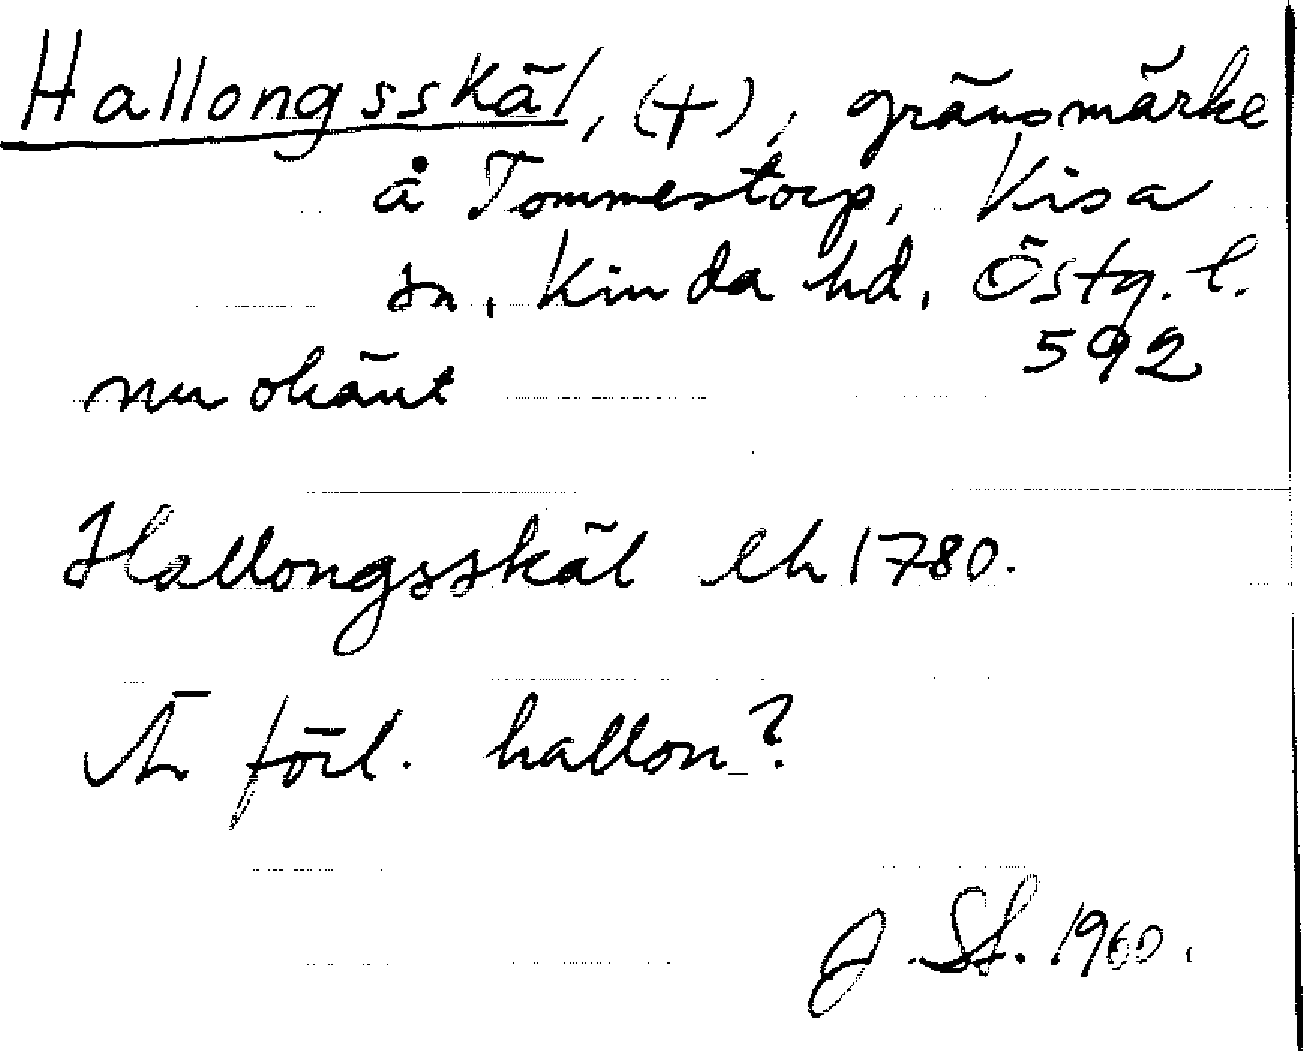 Hallongsskäl, (+), gränsmärke
å Tommestorp, Kisa
sn, Kinda hd, Östg. l.
592
nu okänt
Hallongsskäl lh 1780.
Är förl. hallon?
J. St. 1960.